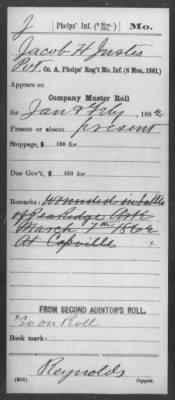 J | Phelps' Inf. (6 Mos., 1861.) | Mo.
Jacob H Justis
Pvt., Co. A, Phelps' Reg't Mo. Inf. (6 Mos., 1861.)
Appears on
Company Muster Roll
for Jan & Feby, 1862
Present or absent present
Stoppage, $ 100 for
Due Gov't, $ 100 for
Remarks: wounded in battle
of Pea Ridge Ark
March 7th 1862
At Capville
FROM SECOND AUDITOR'S ROLL.
*So on Roll
Book mark:
Reynolds
Copyist.